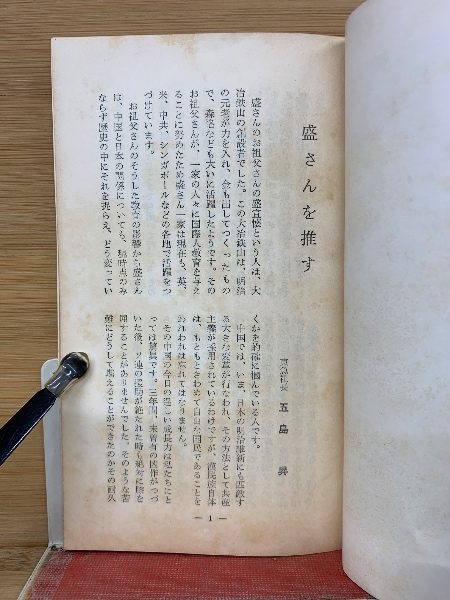 盛さんを推す
東急社長　五島　昇
盛さんのお祖父さんの盛宣懐という人は、大
冶鉄山の創設者でした。この大冶鉄山は、明治
の元老が力を入れ、金も出してつくったもの
で、森恪なども大いに活躍したようです。その
お祖父さんが、一家の人々に国際人教育を与え
ることに努めたため盛さん一家は現在も、英、
米、中共、シンガポールなどの各地で活躍をつ
づけています。
お祖父さんのそうした教育の影響から盛さん
は、中国と日本の関係についても、現時点のみ
ならず歴史の中にそれを捉らえ、どう変ってい
くかを的確に掴んでいる人です。
中国では、いま、日本の明治維新にも匹敵す
る大きな変革が行なわれ、その方法として共産
主義が採用されているわけですが、漢民族自体
は、もともときわめて自由な国民であることを
われわれは忘れてはなりません。
その中国の今日の逞しい成長力は私たちにと
っては驚異です。三年間、未曾有の凶作がつづ
いた後、ソ連の援助が絶たれた時も絶対に膝を
屈することがありませんでした。そのような苦
難にどうして堪えることができたのかその耐久
— 1 —